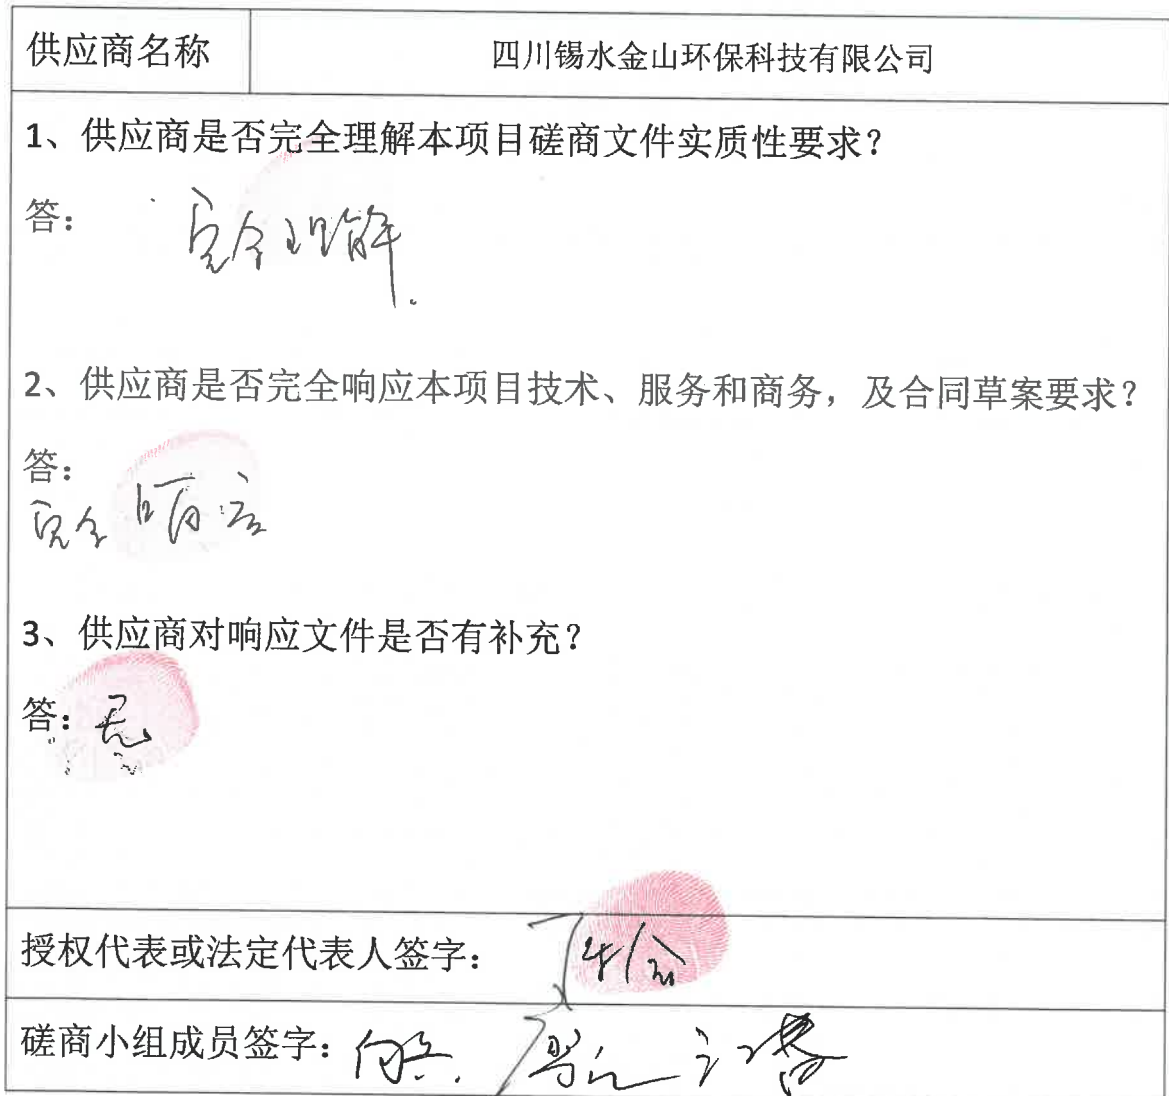 供应商名称 四川锡水金山环保科技有限公司
1、供应商是否完全理解本项目磋商文件实质性要求?
答: 完全理解.
2、供应商是否完全响应本项目技术、服务和商务,及合同草案要求?
答:
完全响应
3、供应商对响应文件是否有补充?
答:无
授权代表或法定代表人签字:
磋商小组成员签字: